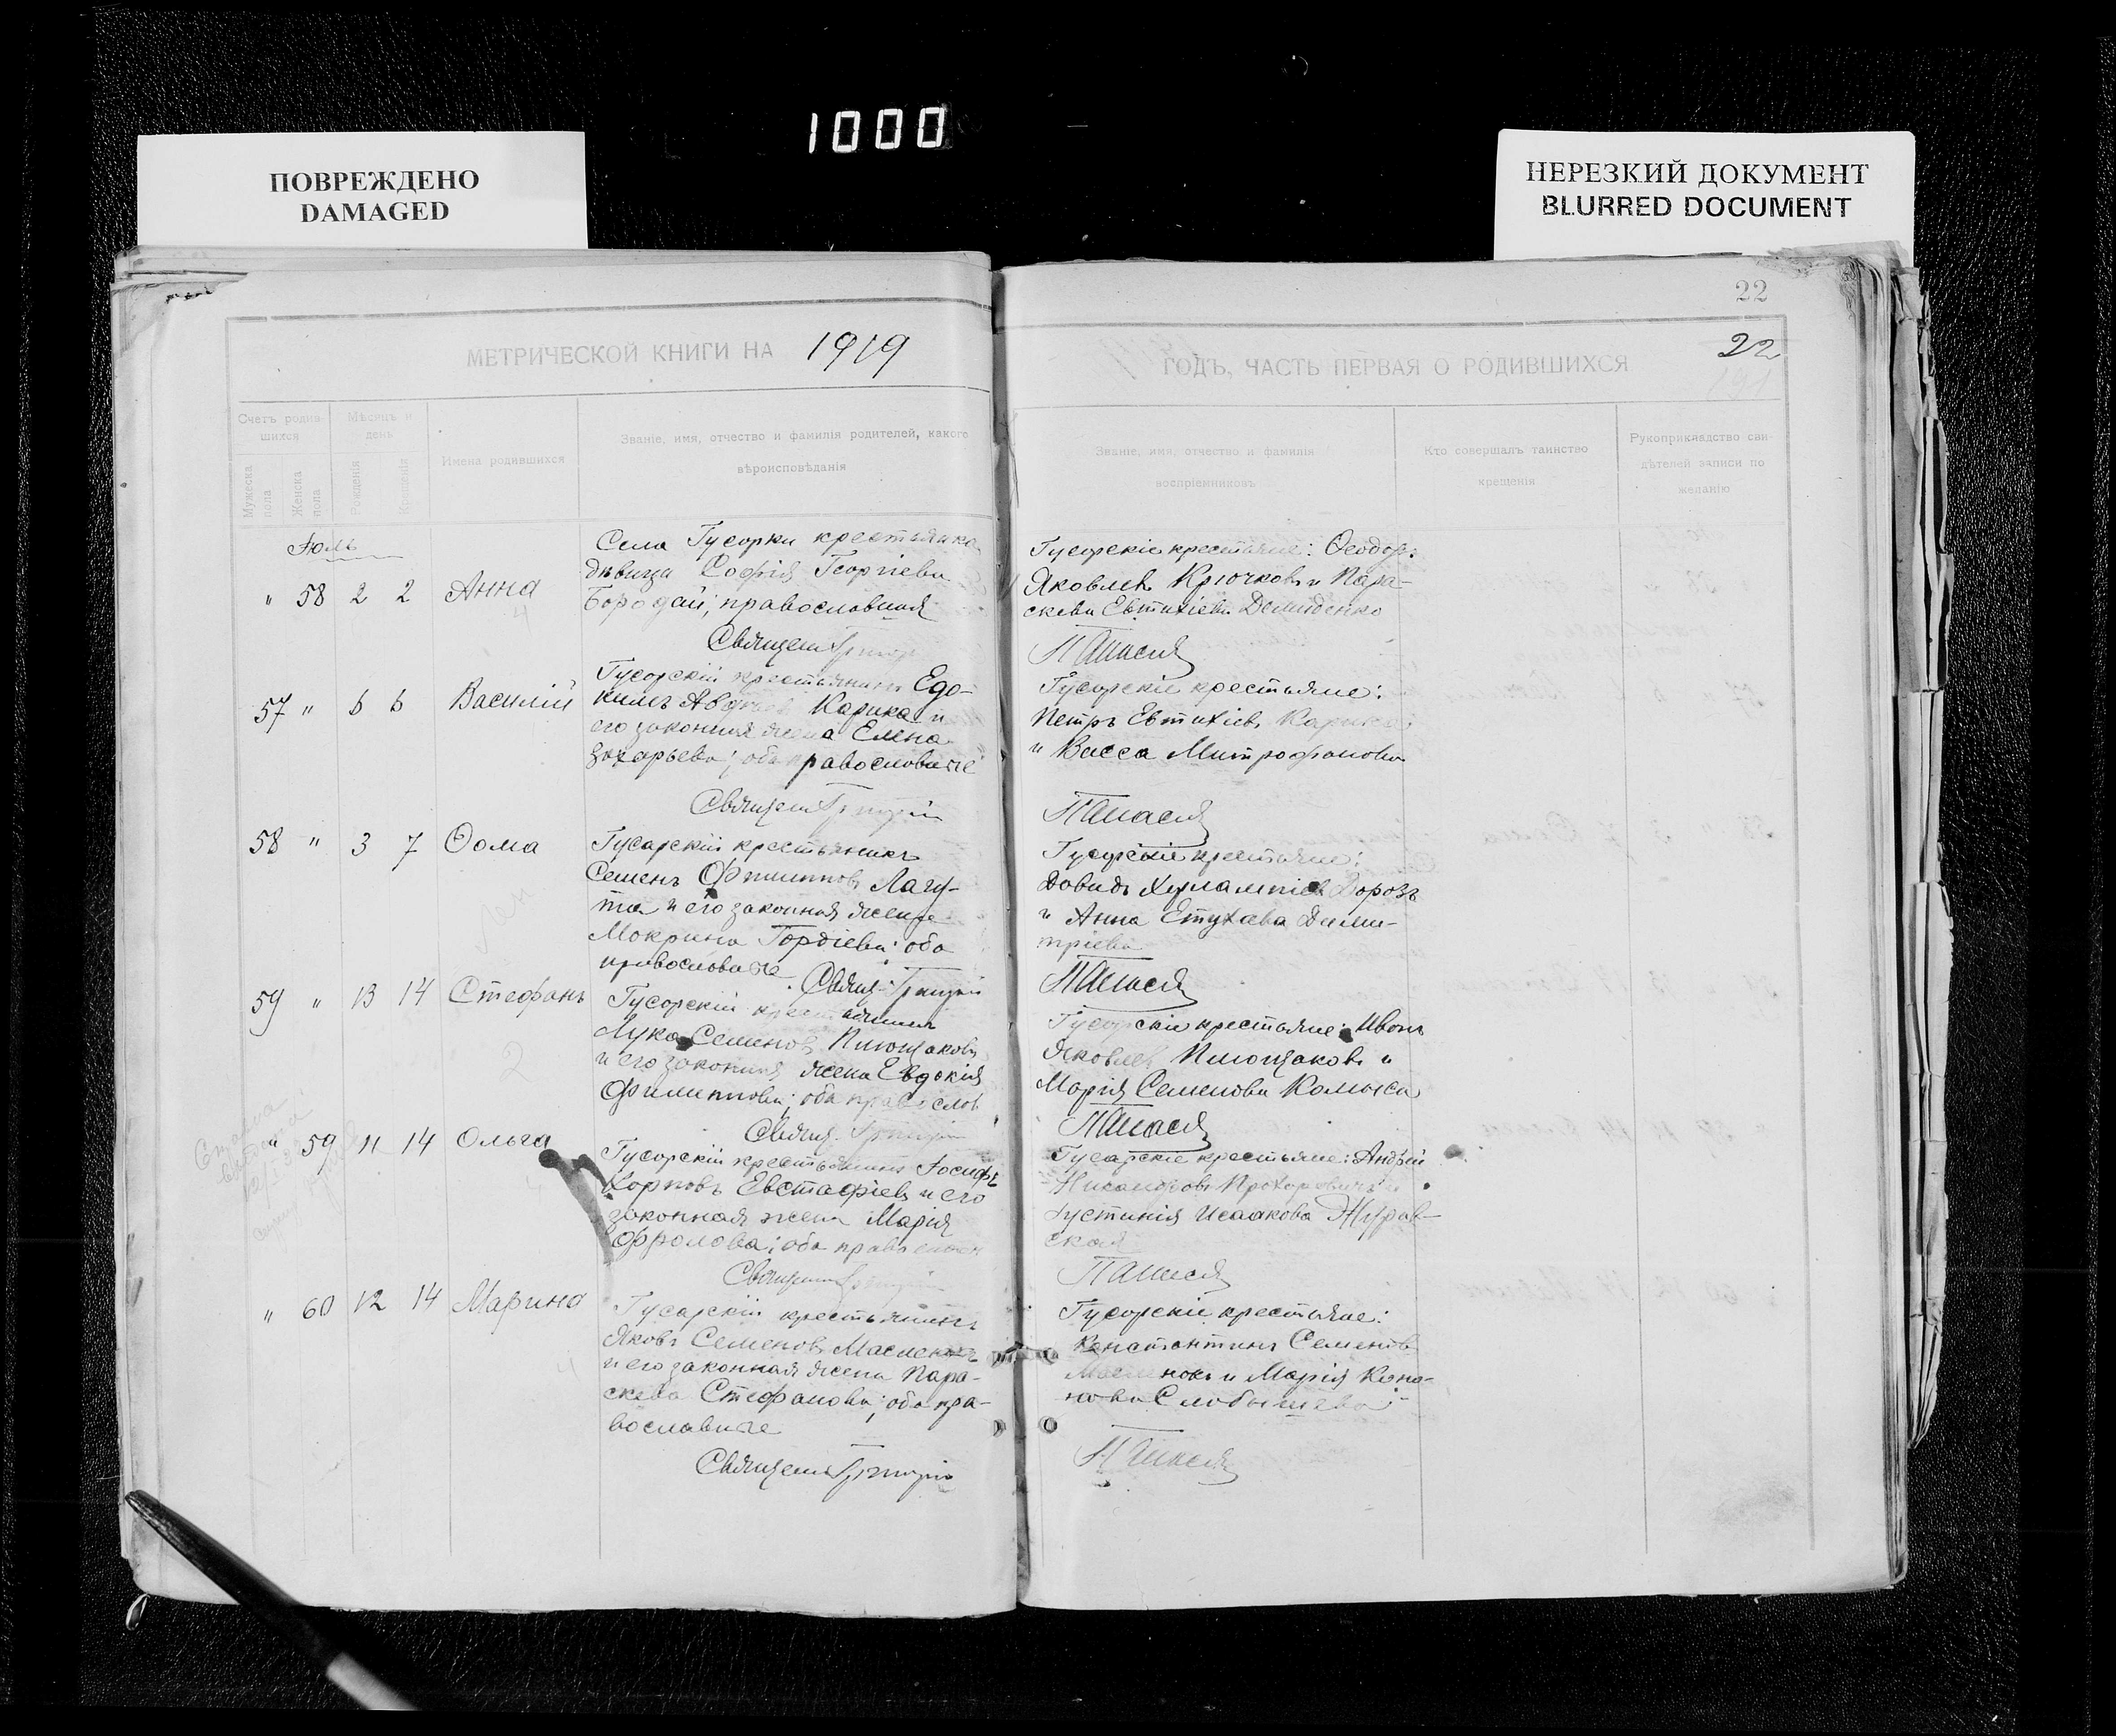 1000
ПОВРЕЖДЕНО
DAMAGED
НЕРЕЗКИЙ ДОКУМЕНТ
BLURRED DOCUMENT
22
МЕТРИЧЕСКОЙ КНИГИ НА 1919
ГОДЪ, ЧАСТЬ ПЕРВАЯ О РОДИВШИХСЯ
22
Счетъ родив-
шихся
Мужеска пола
Женска пола
Мѣсяцъ и
день
Рожденія
Крещенія
Имена родившихся
Званіе, имя, отчество и фамилія родителей, какого
вѣроисповѣданія
Званіе, имя, отчество и фамилія
воспріемниковъ
Кто совершалъ таинство
крещенія
Рукоприкладство сви-
дѣтелей записи по
желанію
Іюль
" 58 2 2 Анна
Села Гусарки крестьянка
дѣвица Софія Георгіева
Бородай; православная
Священ Григор
Гусарскіе крестьяне: Ѳеодоръ
Яковлевъ Крючковъ и Пара-
скева Евтихіева Демиденко
57 " 6 6 Василій
Гусарскій крестьянинъ Едо-
кимъ Карика и
его законная жена Елена
Захарьева; оба православные
Священ Григорій
Гусарскіе крестьяне:
Петръ Евтихіевъ Карика
и Васса Митрофанова
58 " 3 7 Ѳома
Гусарскій крестьянинъ
Семенъ Филипповъ Лагу-
та и его законная жена
Мокрина Гордіева; оба
православные
Свящ. Григорій
Гусарскіе крестьяне:
Давидъ Харлампіевъ
и Анна Дими-
тріева
59 " 13 14 Стефанъ
Гусарскій крестьянинъ
Лука Семеновъ Плющаковъ
и его законная жена Евдокія
Филиппова; оба православ
Свящ. Григорій
Гусарскіе крестьяне: Иванъ
Яковлевъ Плющаковъ и
Марія Семенова
" 59 11 14 Ольга
Гусарскій крестьянинъ Іосифъ
Карповъ Евстафіевъ и его
законная жена Марія
Фролова; оба православн
Священ Григорій
Гусарскіе крестьяне: Андрей
Никаноровъ Прохоровичъ и
Іустинія Исаакова Журав-
ская
" 60 12 14 Марина
Гусарскій крестьянинъ
Яковъ Семеновъ
и его законная жена Пара-
скева Стефанова; оба пра-
вославные
Священ Григорій
Гусарскіе крестьяне:
Константинъ Семеновъ
и Марія Коно-
нова